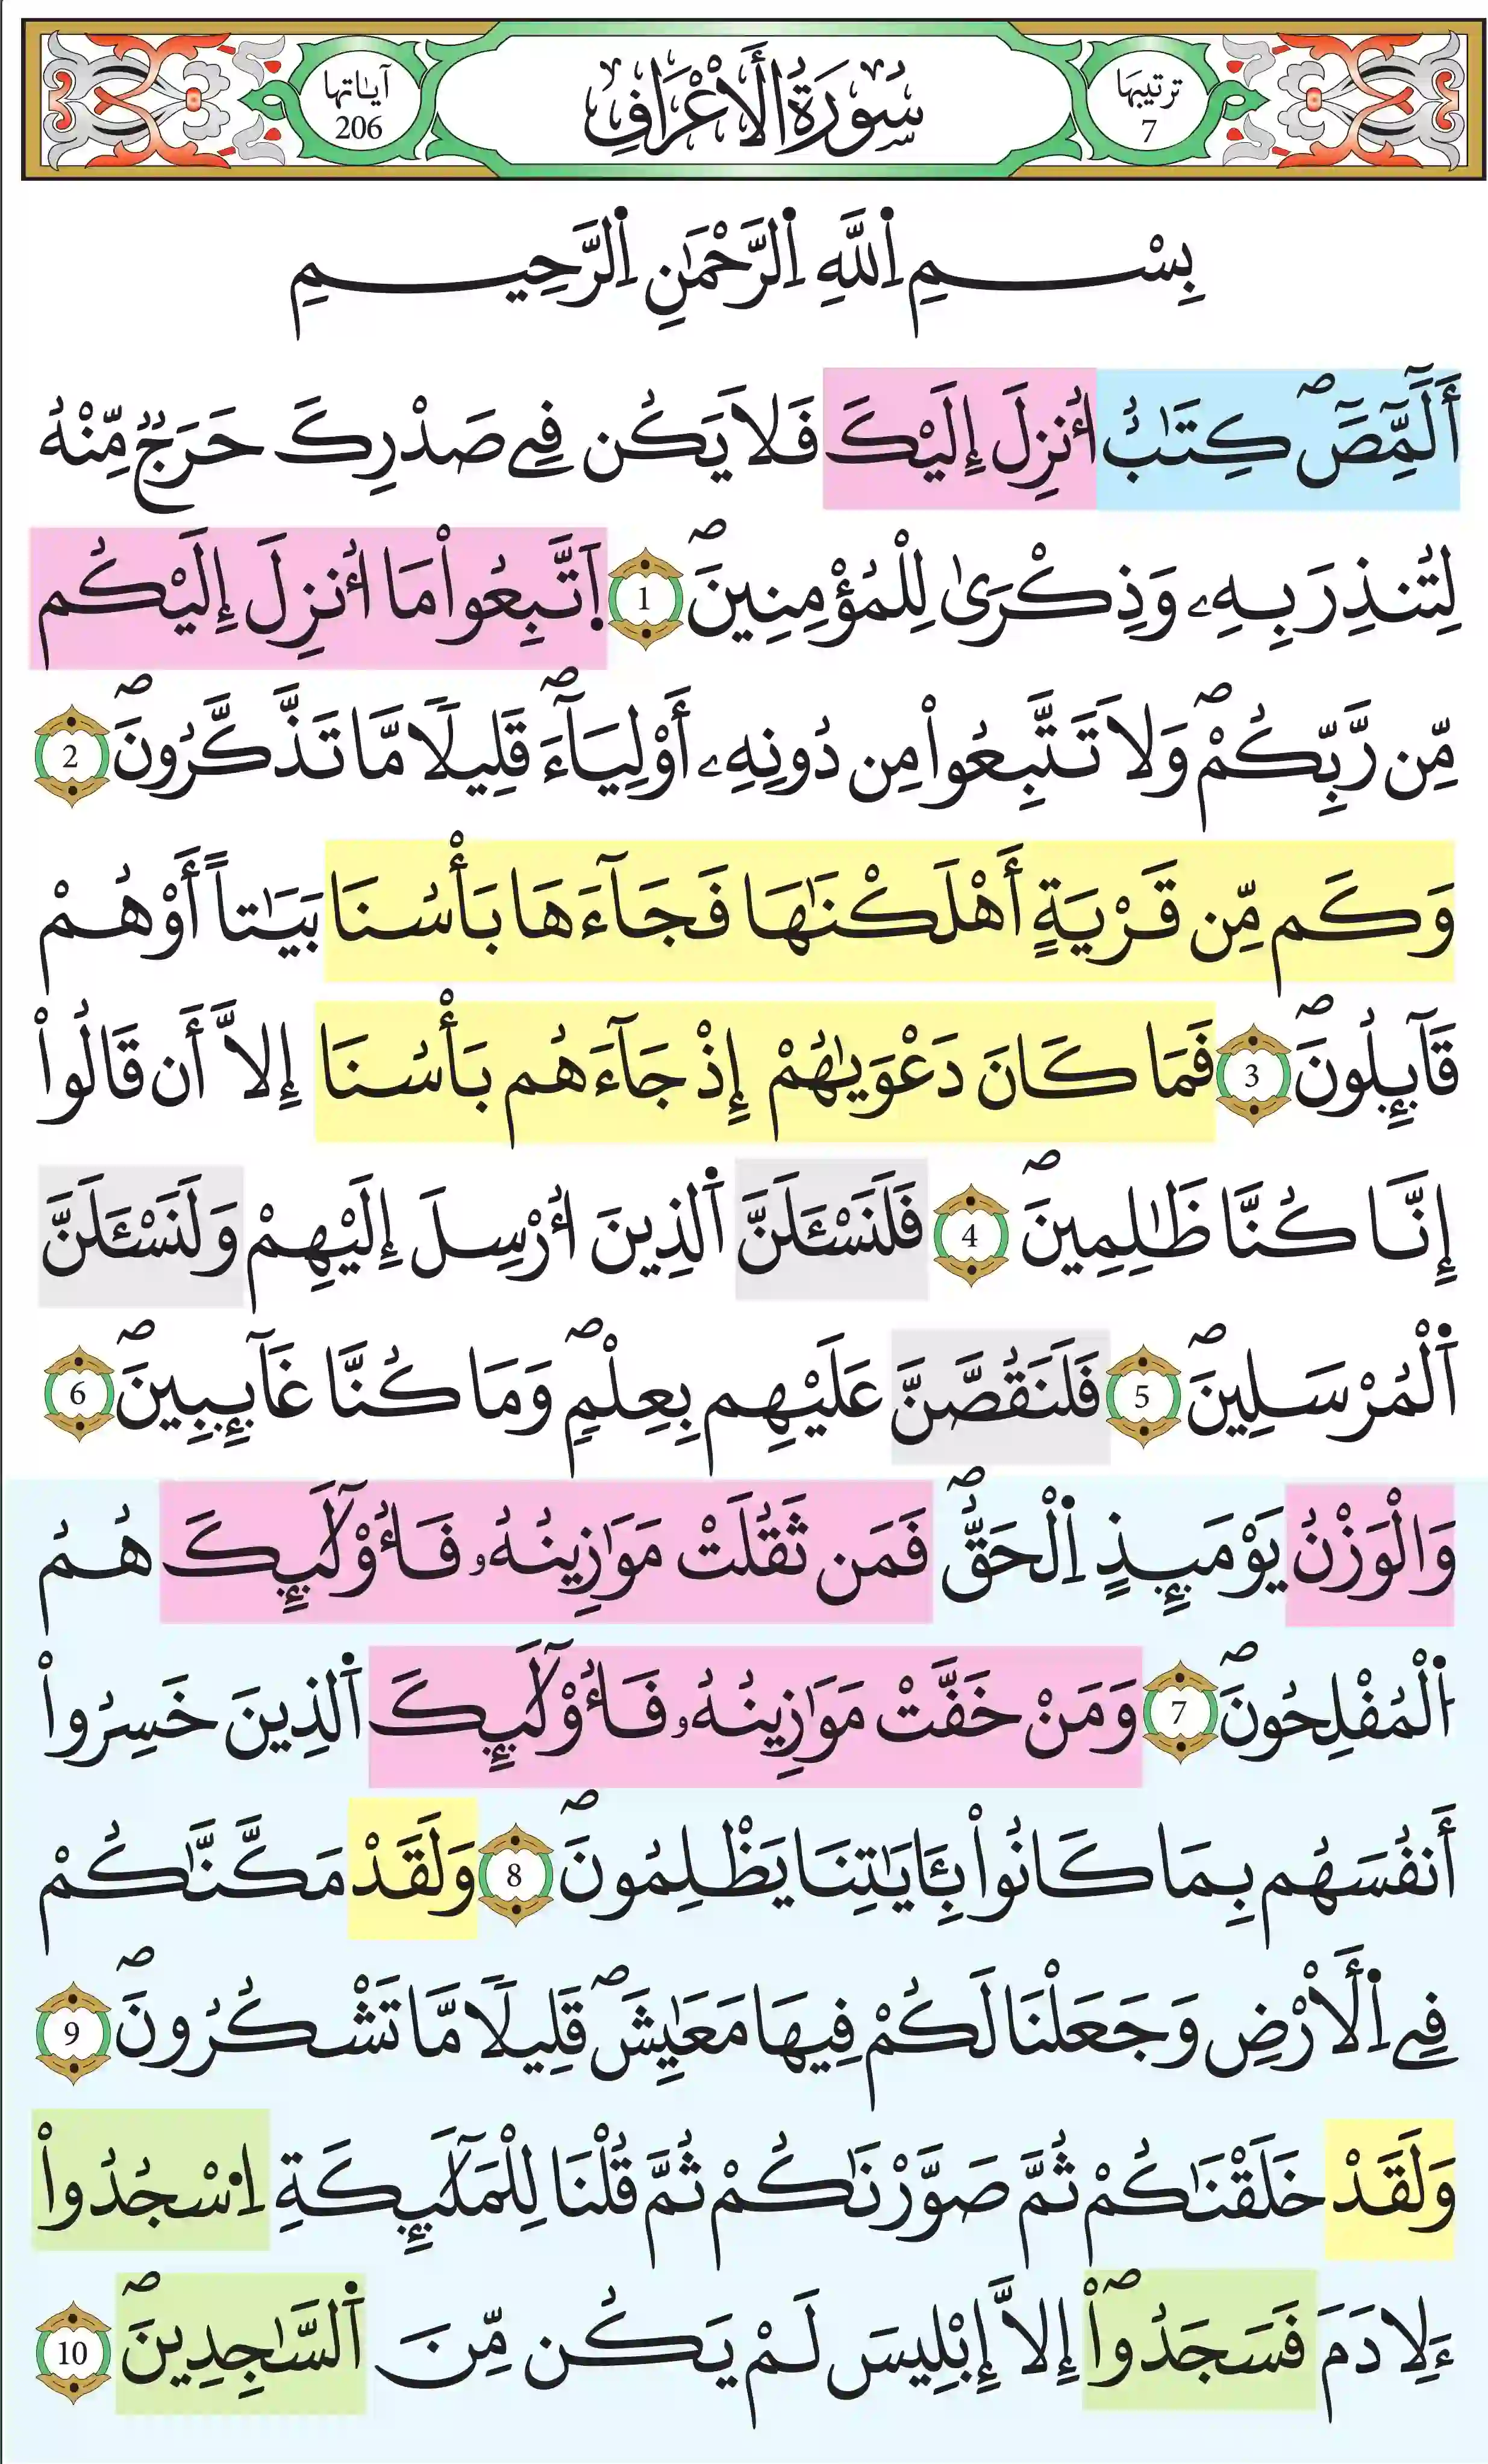 ترتيبها
7
سُورَةُ الْأَعْرَافِ
آياتها
206
بِسْمِ اِ۬للَّهِ اِ۬لرَّحْمَٰنِ اِ۬لرَّحِيمِ
أَلَٓمِّٓصَٓۖ كِتَٰبٌ ا۟نزِلَ إِلَيْكَ فَلَا يَكُن فِے صَدْرِكَ حَرَجٞ مِّنْهُ
لِتُنذِرَ بِهِۦ وَذِكْرَىٰ لِلْمُؤْمِنِينَۖ 1 اَ۪تَّبِعُواْ مَا أُنزِلَ إِلَيْكُم
مِّن رَّبِّكُمْۖ وَلَا تَتَّبِعُواْ مِن دُونِهِۦ أَوْلِيَآءَۖ قَلِيلاٗ مَّا تَذَّكَّرُونَۖ 2
وَكَم مِّن قَرْيَةٍ أَهْلَكْنَٰهَا فَجَآءَهَا بَأْسُنَا بَيَٰتاً أَوْ هُمْ
قَآئِلُونَۖ 3 فَمَا كَانَ دَعْوَيٰهُمْ إِذْ جَآءَهُم بَأْسُنَا إِلَّا أَن قَالُواْ
إِنَّا كُنَّا ظَٰلِمِينَۖ 4 فَلَنَسْـَٔلَنَّ اَ۬لذِينَ أُرْسِلَ إِلَيْهِمْ وَلَنَسْـَٔلَنَّ
اَ۬لْمُرْسَلِينَۖ 5 فَلَنَقُصَّنَّ عَلَيْهِم بِعِلْمٖۖ وَمَا كُنَّا غَآئِبِينَۖ 6
وَالْوَزْنُ يَوْمَئِذٍ اِ۬لْحَقُّۖ فَمَن ثَقُلَتْ مَوَٰزِينُهُۥ فَأُوْلَٰٓئِكَ هُمُ
اُ۬لْمُفْلِحُونَۖ 7 وَمَنْ خَفَّتْ مَوَٰزِينُهُۥ فَأُوْلَٰٓئِكَ اَ۬لذِينَ خَسِرُواْ
أَنفُسَهُم بِمَا كَانُواْ بِـَٔايَٰتِنَا يَظْلِمُونَۖ 8 وَلَقَدْ مَكَّنَّٰكُمْ
فِے اِ۬لْأَرْضِ وَجَعَلْنَا لَكُمْ فِيهَا مَعَٰيِشَۖ قَلِيلاٗ مَّا تَشْكُرُونَۖ 9
وَلَقَدْ خَلَقْنَٰكُمْ ثُمَّ صَوَّرْنَٰكُمْ ثُمَّ قُلْنَا لِلْمَلَٰٓئِكَةِ اِ۟سْجُدُواْ
ءَلِادَمَ فَسَجَدُواْۖ إِلَّا إِبْلِيسَ لَمْ يَكُن مِّنَ اَ۬لسَّٰجِدِينَۖ 10